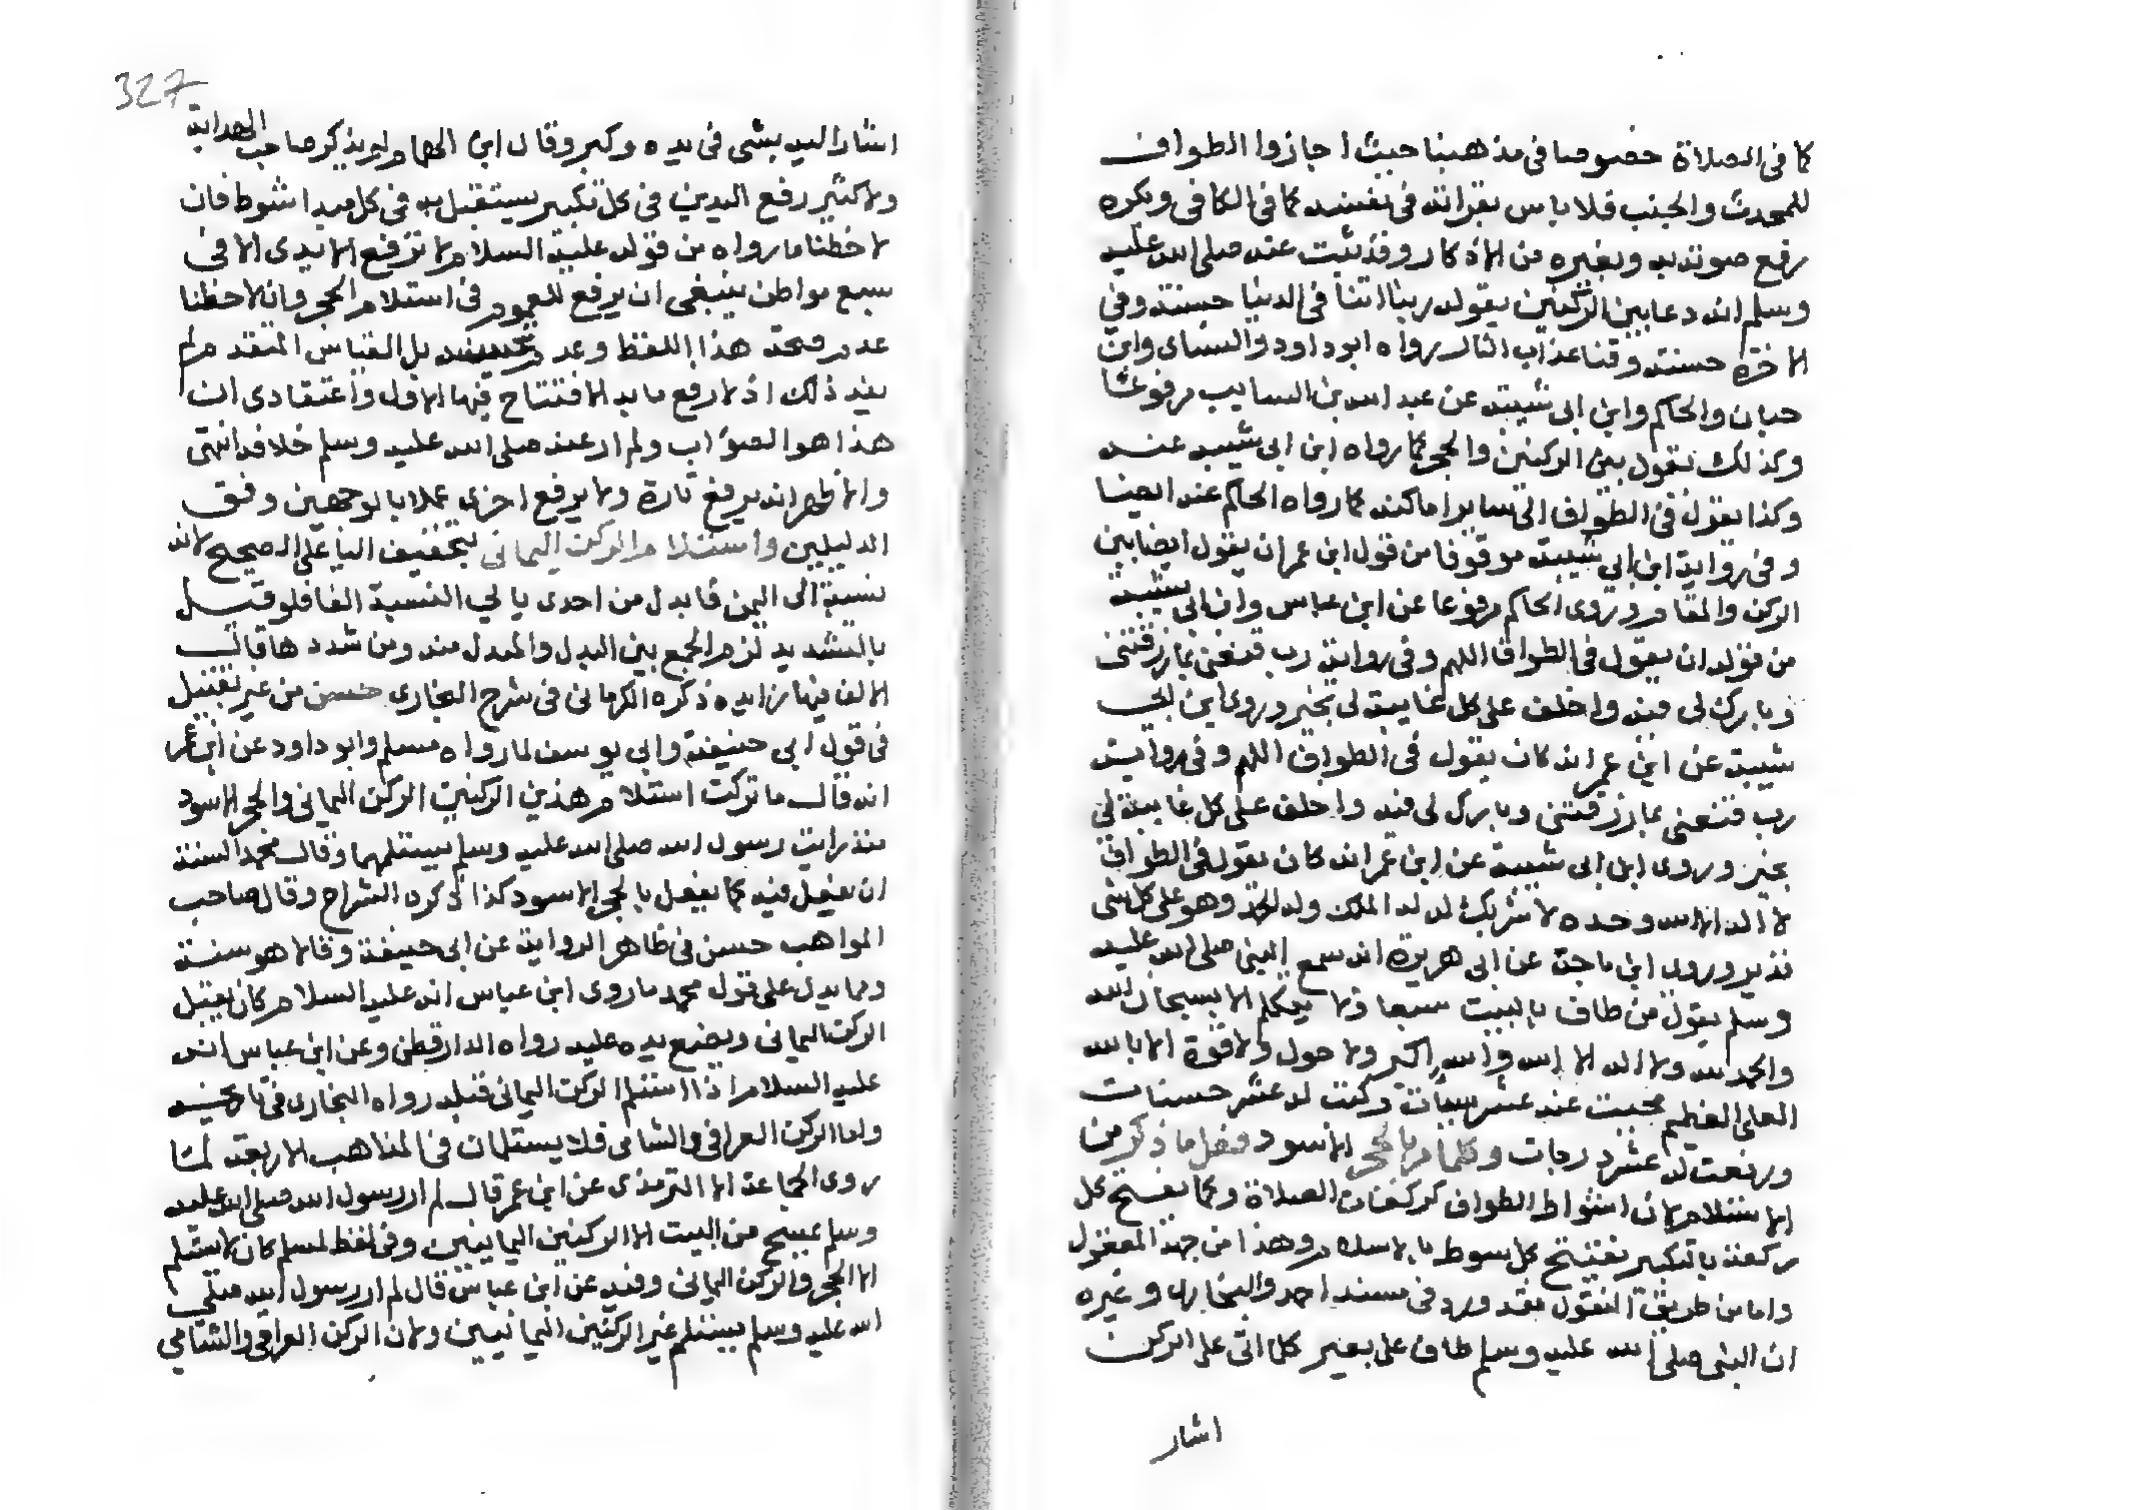 كما في الصلاة خصوصا في مذهبنا حيث اجازوا الطواف
للمحدث والجنب فلا باس بقرانه في نفسه كما في الكافي ويكره
رفع صوته به وبغيره من الاذكار وقد ثبت عنه صلى الله عليه
وسلم انه دعا بين الركنين بقوله ربنا اتنا في الدنيا حسنة وفي
الاخرة حسنة وقنا عذاب النار رواه ابو داود والنساى وابن
حبان والحاكم وابن ابى شيبة عن عبد الله بن السايب مرفوعا
وكذلك يقول بين الركنين والحجر كما رواه ابن ابى شيبه عنه
وكذا يقول في الطواف اى سايرا ماكنه كما رواه الحاكم عنه ايضا
وفي رواية ابن ابي شيبة موقوفا من قول ابن عمر ان يقول ايضا بين
الركن والمقام وروى الحاكم مرفوعا عن ابن عباس وابن ابي شيبة
من قوله ان يقول في الطواف اللهم وفي رواية رب قنعني بما رزقتني
وبارك لي فيه واخلف على كل غايبة لي بخير وروى ابن ابي
شيبة عن ابن عمر انه كان يقول في الطواف اللهم وفي رواية
رب قنعني بما رزقتني وبارك لي فيه واخلف على كل غايبة لي
بخير وروى ابن ابى شيبة عن ابن عمر انه كان يقول في الطواف
لا اله الا الله وحده لا شريك له له الملك وله الحمد وهو على كل شى
قدير وروى ابن ماجة عن ابى هريرة انه سمع النبي صلى الله عليه
وسلم يقول من طاف بالبيت سبعا ولا يتكلم الا بسبحان الله
والحمد لله ولا اله الا الله والله اكبر ولا حول ولا قوة الا بالله
العلى العظيم محيت عنه عشر سيأت وكتبت له عشر حسنات
ورفعت له عشر درجات وكلما مر بالحجر الاسود فعل ما ذكر من
الاستلام لان اشواط الطواف كركعات الصلاة وكما يفتتح كل
ركعة بالتكبير يفتتح كل شوط بالاستلام وهذا من جهة المعقول
واما من طريقة المنقول فقد ورد في مسند احمد والبخارى وغيره
ان النبى صلى الله عليه وسلم طاف على بعير كلما اتى على الركن
اشار
327
اشار اليه بشى في يده وكبر وقال ابن الهمام ولم يذكر صاحب الهداية
ولا كثير رفع اليدين في كل تكبير يستقبل به في كل مبدا شوط فان
لاحظنا ما رواه من قوله عليه السلام لا ترفع الايدى الا في
سبع مواطن ينبغى ان يرفع للعموم في استلام الحجر وان لاحظنا
عدم صحة هذا اللفظ وعدم تحسينه بل القياس المتقدم لم
يفد ذلك اذ لا رفع ما به الافتتاح فيها الا في الاول واعتقادى ان
هذا هو الصواب ولم ار عنه صلى الله عليه وسلم خلافه انتهى
والاظهر انه يرفع تارة ولا يرفع اخرى عملا بالوجهين وفق
الدليلين واستلام الركن اليماني بتخفيف اليا على الصحيح لانه
نسبة الى اليمن فابدل من احدى يا لى النسبة الفا فلو قيل
بالتشديد لزم الجمع بين البدل والمبدل منه ومن شددها قال
الالف فيها زايده ذكره الكرمانى في شرح البخارى حسن من غير تقبيل
في قول ابى حنيفة وابى يوسف لما رواه مسلم وابو داود عن ابن عمر
انه قال ما تركت استلام هذين الركنين الركن اليمانى والحجر الاسود
منذ رايت رسول الله صلى الله عليه وسلم يستلمهما وقال محمد السنة
ان يفعل فيه كما يفعل بالحجر الاسود كذا ذكره الشراح وقال صاحب
المواهب حسن في ظاهر الرواية عن ابى حنيفة وقالا هو سنة
ومما يدل على قول محمد ما روى ابن عباس انه عليه السلام كان يقبل
الركن اليمانى ويضع يده عليه رواه الدارقطني وعن ابن عباس انه
عليه السلام اذا استلم الركن اليمانى قبله رواه البخارى في تاريخه
واما الركن العراقى والشامى فلا يستلمان في المذاهب الاربعة لما
روى الجماعة الا الترمذى عن ابن عمر قال لم ار رسول الله صلى الله عليه
وسلم يمسح من البيت الا الركنين اليمانيين وفي لفظ لمسلم كان لا يستلم
الا الحجر والركن اليمانى وفيه عن ابن عباس قال لم ار رسول الله صلى
الله عليه وسلم يستلم غير الركنين اليمانيين ولان الركن العراقي والشامي